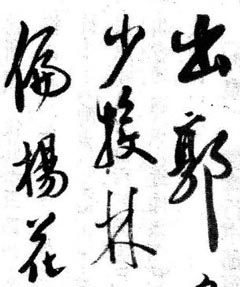 出郭
少擬林
偏楊花